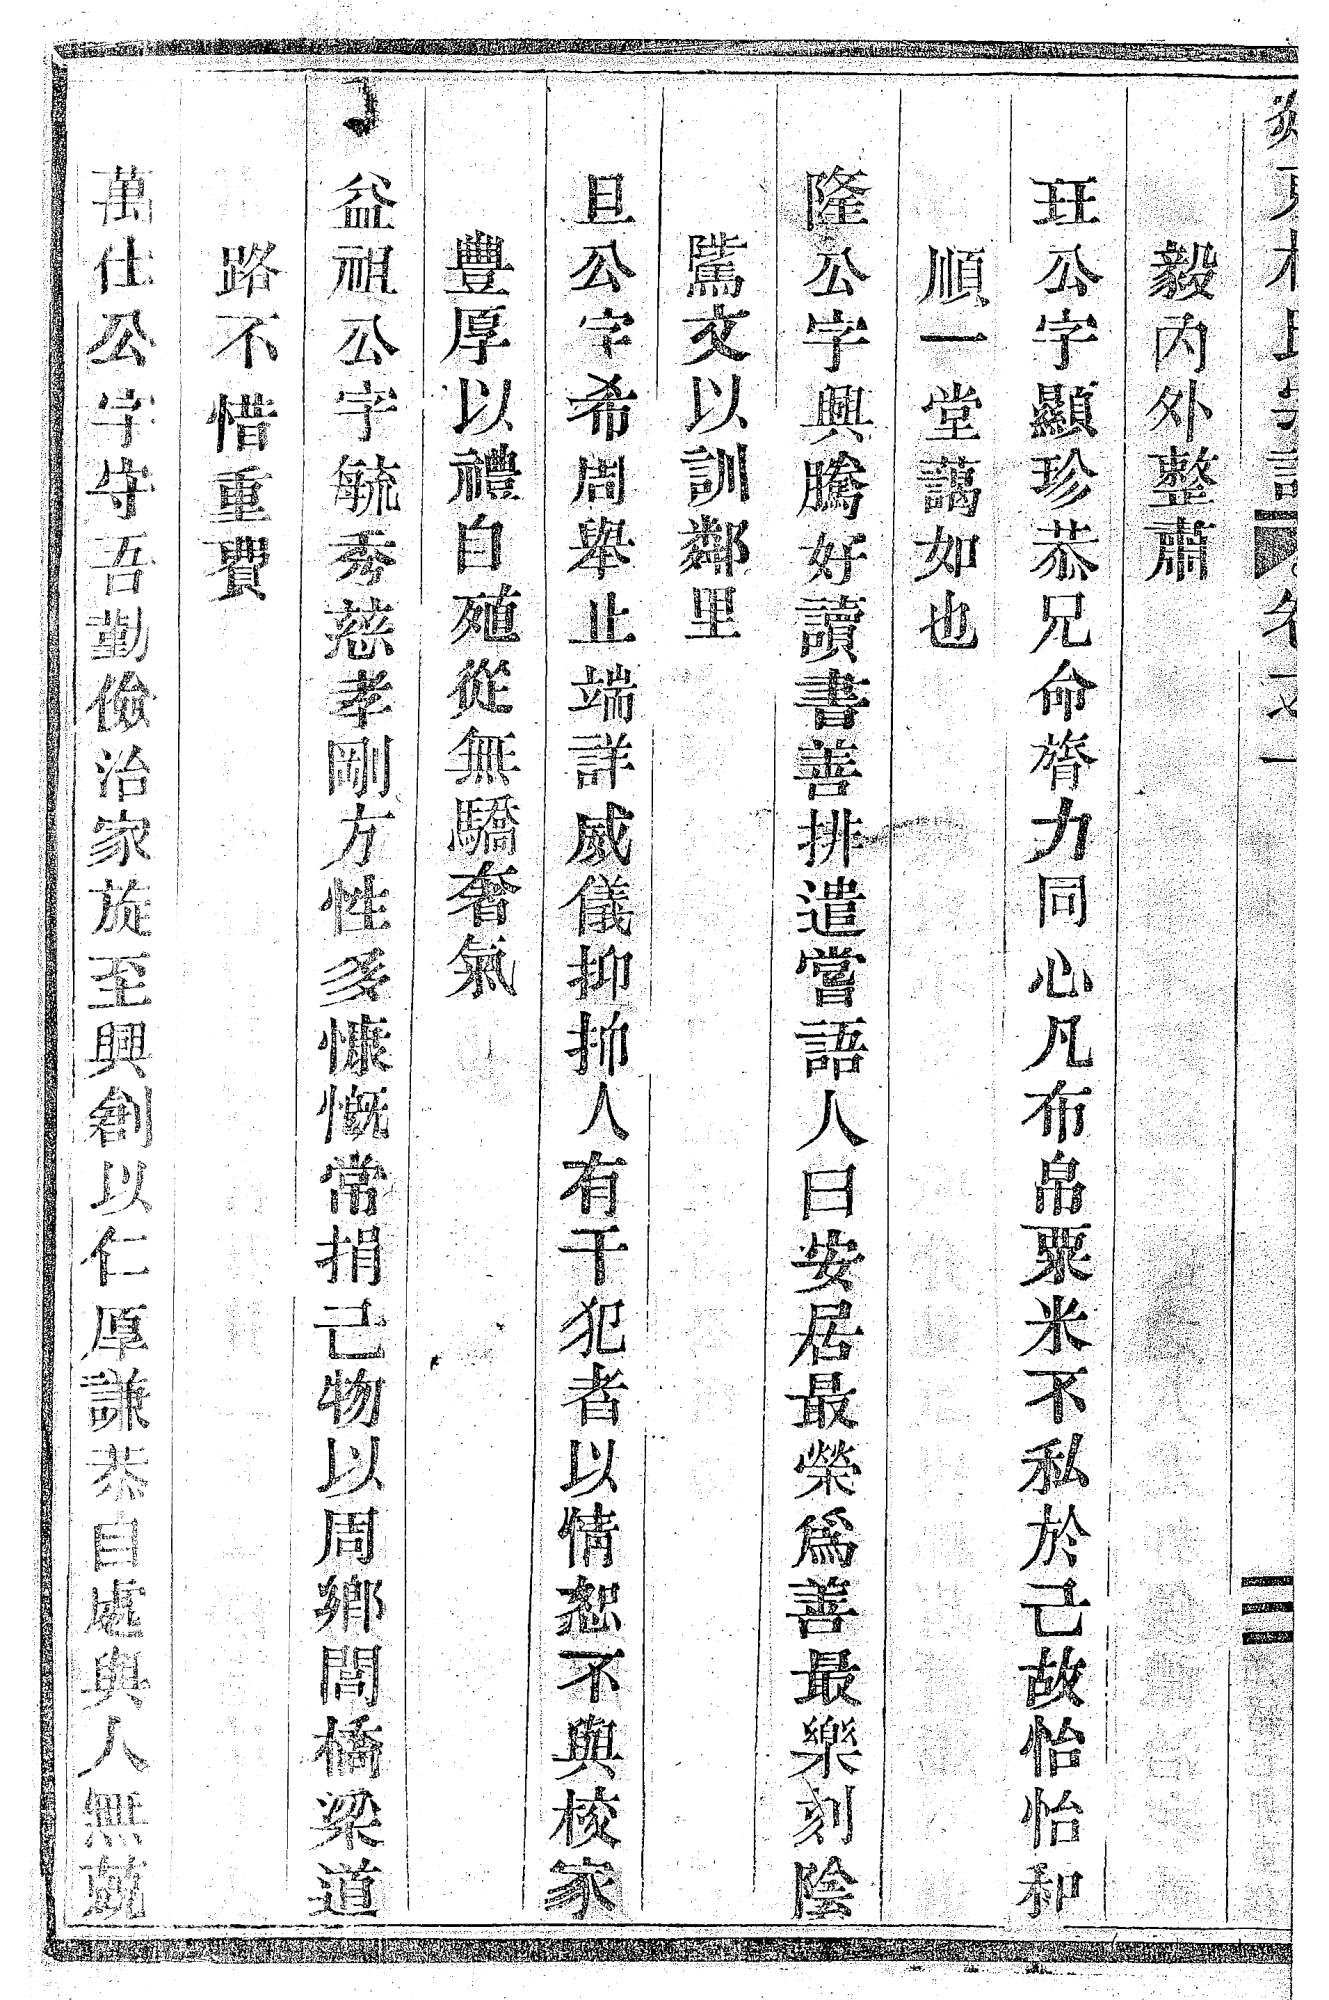 毅內外整肅
玨公字顯珍恭兄命膂力同心凡布帛粟米不私於己故怡怡和
順一堂藹如也
隆公字興騰好讀書善排遣嘗語人曰安居最榮為善最樂刻陰
騭文以訓鄰里
旦公字希周舉止端詳威儀抑抑人有干犯者以情恕不與校家
豐厚以禮自殖從無驕奢氣
益祖公字毓秀慈孝剛方性多慷慨常捐己物以周鄉閭橋梁道
路不惜重費
萬仕公字守吾勤儉治家旋至興創以仁厚謙恭自處與人無兢